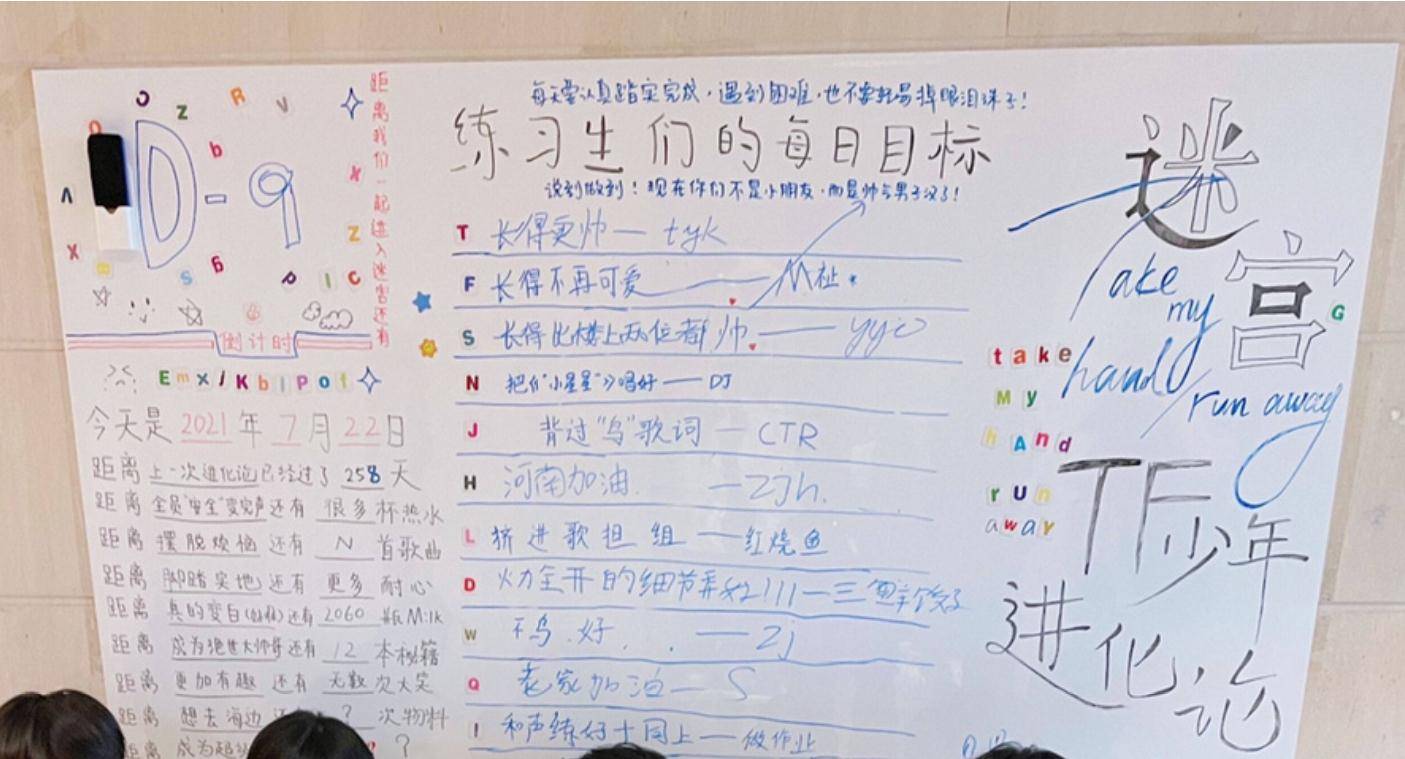 D-9
距离我们一起进入迷宫还有
倒计时
今天是 2021 年 7 月 22 日
距离 上一次进化论已经过了 258 天
距离 全员"安全"变完声 还有 很多 杯热水
距离 摆脱烦恼 还有 N 首歌曲
距离 脚踏实地 还有 更多 耐心
距离 真的变白 还有 2060 瓶 Milk
距离 成为绝世大帅哥 还有 12 本秘籍
距离 更加有趣 还有 无数 次大笑
距离 想去海边 ? 次物料
距离 成为超 ?
每天要认真踏实完成,遇到困难,也不要轻易掉眼泪珠子!
练习生们的每日目标
说到做到!现在你们不是小朋友,而是帅气男子汉了!
T 长得更帅 — tyk
F 长得不再可爱 — M祉
S 长得比楼上两位都帅 — yyc
N 把《"小星星"》唱好 — DJ
J 背过"鸟"歌词 — CTR
H 河南加油 — zjh.
L 挤进歌担组 — 红烧鱼
D 火力全开的细节弄好!!! — 三
W 好 — Zj
Q 老家加油 — S
I 和声练好+同上 — 做作业
迷宫
take my hand run away
G
take
My
hAnd
rUn
away
TF少年
进化论